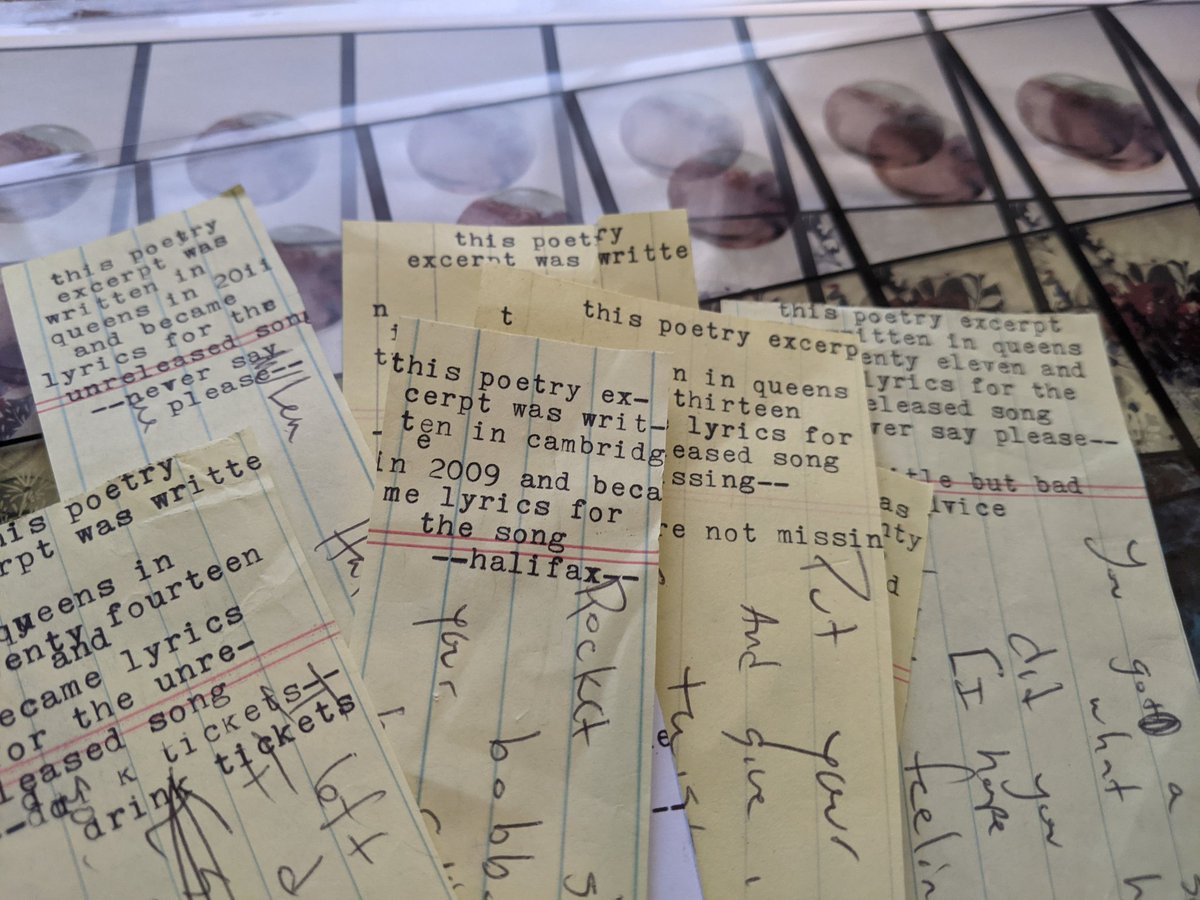 this poetry
excerpt was
written in
queens in 2011
and became
lyrics for the
unreleased song
--never say
please--
this poetry
excerpt was writte
n
t
this poetry excerp
n in queens
thirteen
lyrics for
eased song
ssing--
re not missin
Put
your
And give
this
this poetry excerpt
itten in queens
enty eleven and
lyrics for the
eleased song
ver say please--
tle but bad
dvice
You
a
what
did you
[I hope
feelin
this poetry ex-
cerpt was writ-
ten in cambridg
e
in 2009 and beca
me lyrics for
the song
--halifax--
Rocket
your
bobb
his poetry
rpt was writte
queens in
enty fourteen
and
ecame lyrics
or the unre-
leased song
tickets--
drink tickets
loft